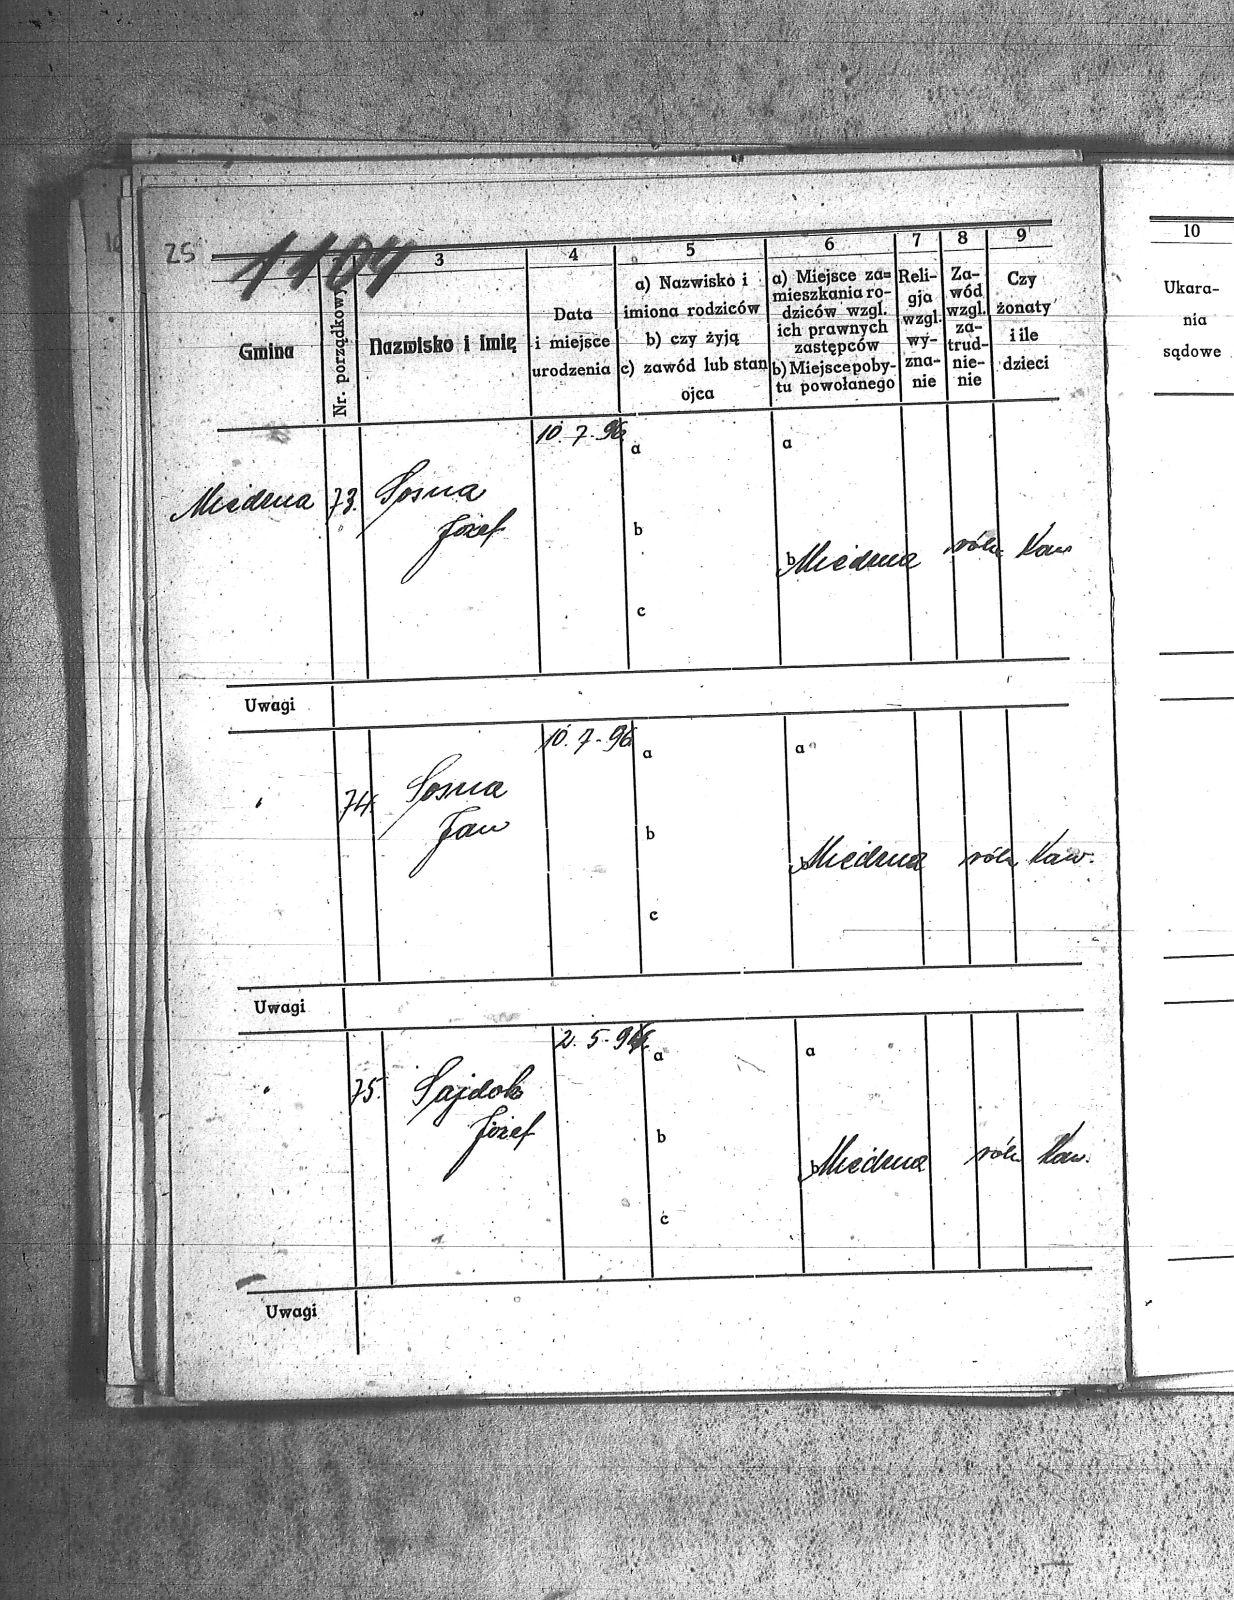 25
1107
3 4 5 6 7 8 9
Gmina
Nr. porządkowy
Nazwisko i Imię
Data
i miejsce
urodzenia
a) Nazwisko i
imiona rodziców
b) czy żyją
c) zawód lub stan
ojca
a) Miejsce za=
mieszkania ro-
dziców wzgl.
ich prawnych
zastępców
b) Miejsce poby-
tu powołanego
Reli-
gja
wzgl.
wy-
zna-
nie
Za-
wód
wzgl.
za-
trud-
nie-
nie
Czy
żonaty
i ile
dzieci
10
Ukara-
nia
sądowe
10. 7. 96
a a
Miedzna 73. Sosna
Józef
b
b Miedzna roln Kaw
c
Uwagi
10. 7. 96
a a
74. Sosna
Jan
b
b Miedzna roln Kaw.
c
Uwagi
2. 5.
a a
75. Sajdok
Józef
b
b Miedzna roln Kaw.
c
Uwagi